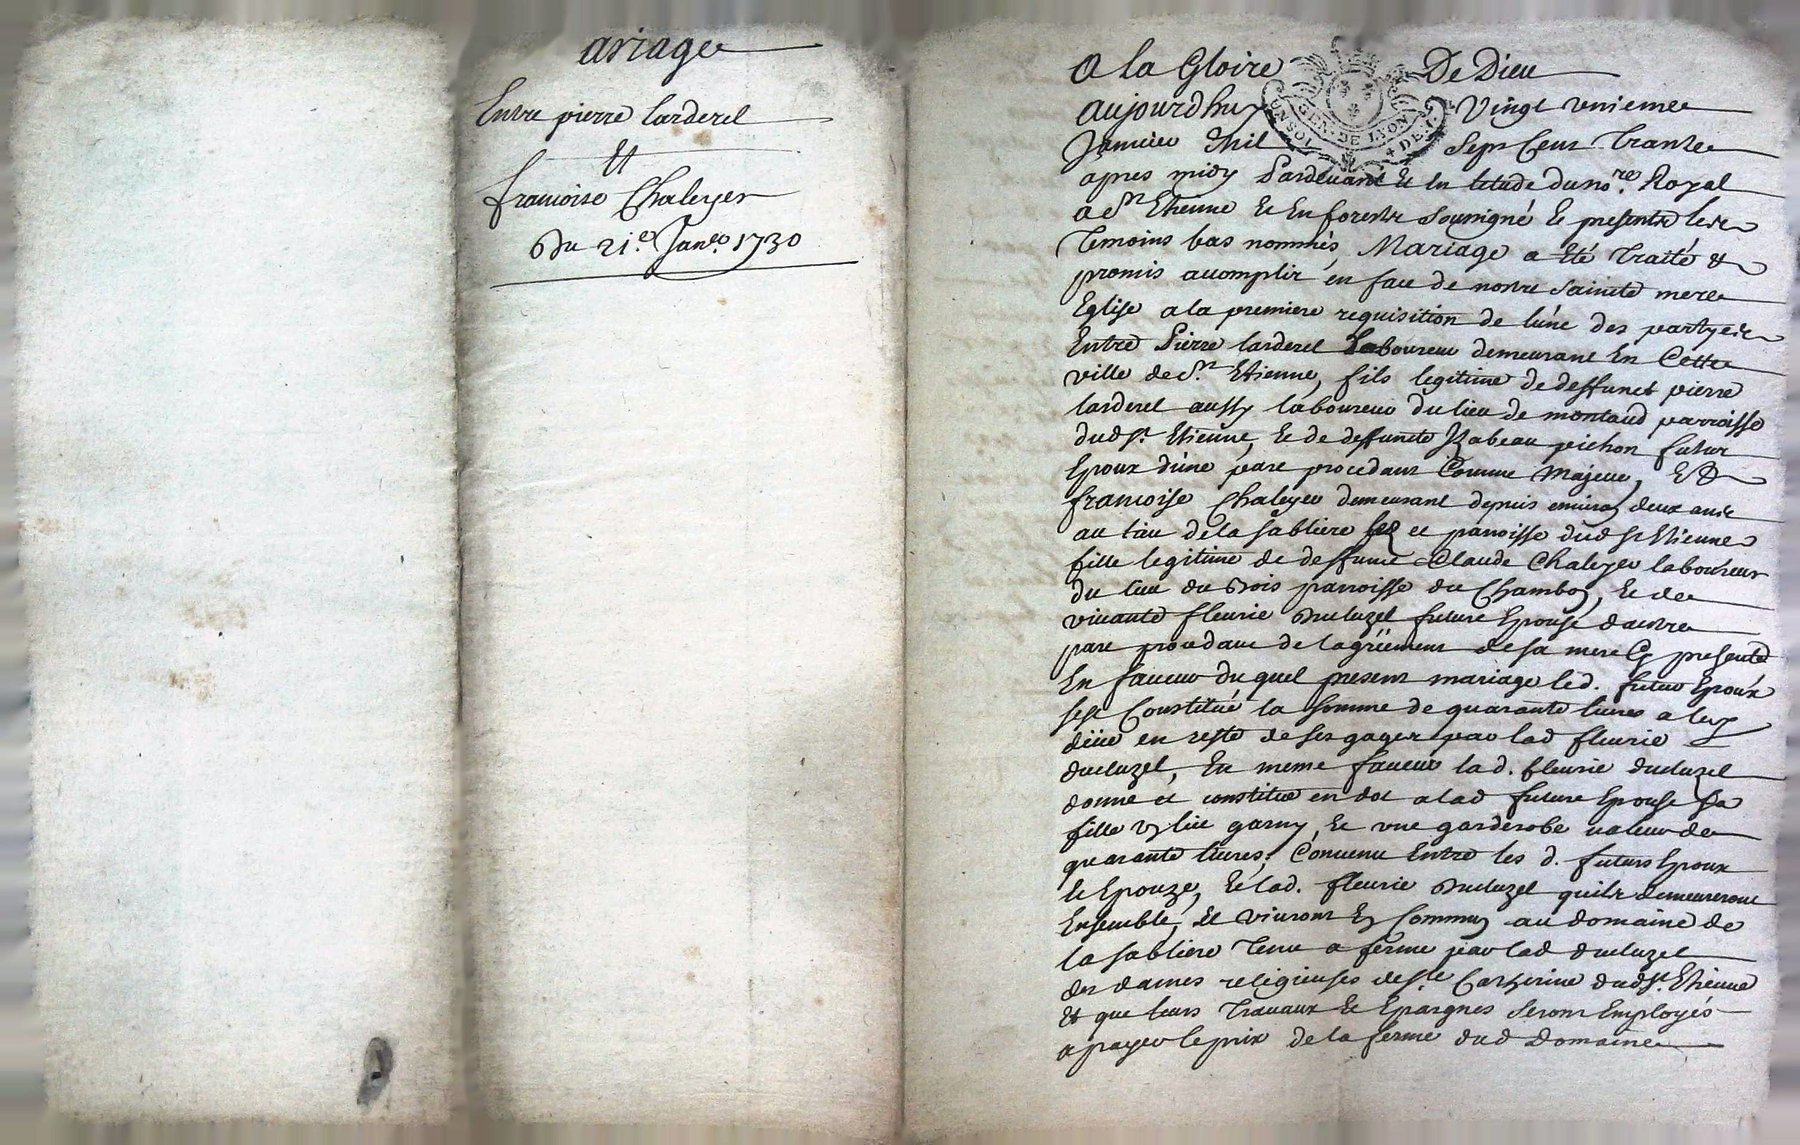 ariage
Entre pierre larderel
Et
francoise Chaleyer
Du 21.e Janer. 1730
A la Gloire De Dieu
aujourdhuy Vingt unieme
Janvier Mil Sept Cent Trante
apres midy Pardevant Et En letude du nore. Royal
a St Etienne Et En forestz soussigné Et presentz les
Temoins bas nommés, Mariage a Eté Traité &
promis accomplir en face de nostre Sainte mere
Eglise a la premiere requisition de lúne des partyes
Entre Pierre larderel Laboureur demeurant En Cette
ville de St. Etienne, fils legitime de deffunct pierre
larderel aussy laboureur du lieu de montaud parroisse
dud St. Etienne, Et de deffuncte Izabeau pichon futur
Epoux dúne part procedant Comme Majeur, Et
francoise Chaleyer demeurant depuis environ deux ans
au lieu de la sabliere et parroisse dud St Etienne
fille legitime de deffunct Claude Chaleyer laboureur
du lieu du Bois parroisse du Chambon, Et de
vivante fleurie Ducluzel future Epouse dautre
part procedant de lagrëement de sa mere Cy presente
En faveur du quel present mariage led. futur Epoux
sest Constitué la somme de quarante livres a luy
deüe en reste de ses gages par lad fleurie
ducluzel, En meme faveur lad. fleurie ducluzel
donne et constitue en dot a lad future Epouse sa
fille un lict garny, Et une garderobe valeur de
quarante livres; Convenu Entre les d. futurs Epoux
Et Epouze, Et lad. fleurie Ducluzel quils demeureront
Ensemble, Et vivront En Commun au domaine de
la sabliere Tenu a ferme par lad ducluzel
des dames religieuses de Ste Catherine dud St. Etienne
Et que leurs Travaux Et Epargnes seront Employés
a payer le prix de la ferme dud Domaine
GEN. DE LYON